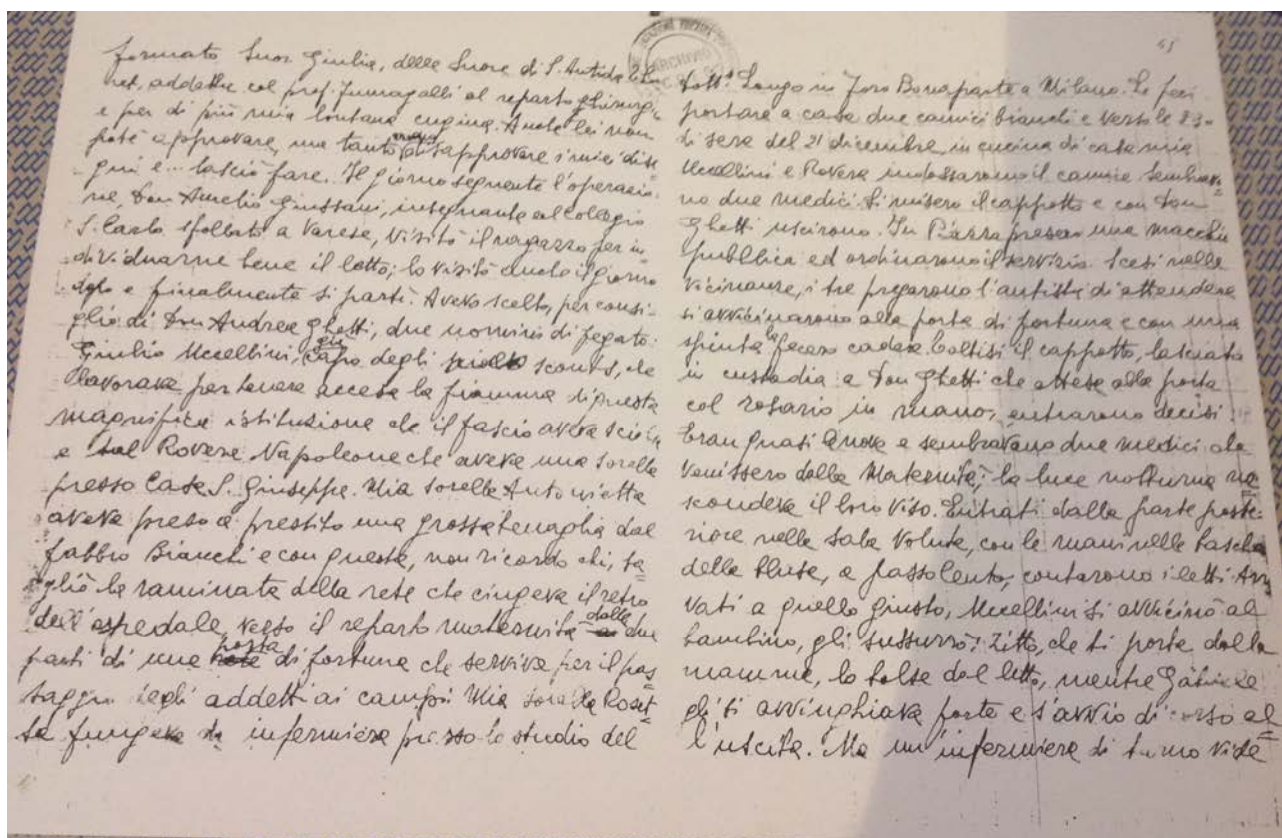 formato Suor Giulia, delle Suore di S. Antida
ret, addetta col prof. Fumagalli al reparto chirurgi=
e per di più mia lontana cugina. Anche lei non
poté approvare, ma tanto meno disapprovare i miei dise
gni e... lasciò fare. Il giorno seguente l'operazio=
ne, Don Aurelio Giussani, insegnante al Collegio
S. Carlo sfollato a Varese, visitò il ragazzo per in
dividuarne bene il letto; lo visitò anche il giorno
dopo e finalmente si partì. Avevo scelto, per consi=
glio di Don Andrea Ghetti, due uomini di fegato:
Giulio Uccellini, già Capo degli scouts, che
lavorava per tenere accesa la fiamma di questa
magnifica istituzione che il fascio aveva sciolta
e tal Rovera Napoleone che aveva una sorella
presso Casa S. Giuseppe. Mia sorella Antonietta
aveva preso a prestito una grossa tenaglia dal
fabbro Bianchi e con questa, non ricordo chi, ta=
gliò la raminata della rete che cingeva il retro
dell'ospedale, verso il reparto maternità dalle due
parti di una porta di fortuna che serviva per il pas=
saggio degli addetti ai campi. Mia sorella Roset=
ta fungeva da infermiera presso lo studio del
45
ARCHIVIO
Dott. Longo in Foro Bonaparte a Milano. Le feci
portare a casa due camici bianchi e verso le
di sera del 21 dicembre, in cucina di casa mia
Uccellini e Rovera indossarono il camice. Sembrava
no due medici. Si misero il cappotto e con Don
Ghetti uscirono. In Piazza presero una macchi
pubblica ed ordinarono il servizio. Scesi nelle
vicinanze, i tre pregarono l'autista di attendere
si avvicinarono alla porta di fortuna e con una
spinta la fecero cadere. Toltisi il cappotto, lasciato
in custodia a Don Ghetti che attese alla porta
col rosario in mano, entrarono decisi.
Eran quasi le nove e sembravano due medici che
venissero dalla Maternità; la luce notturna na
scondeva il loro viso. Entrati dalla parte poste=
riore nella sala voluta, con le mani nelle tasche
della blusa, a passo lento, contarono i letti. Arri
vati a quello giusto, Uccellini si avvicinò al
bambino, gli sussurrò: Zitto, che ti porto dalla
mamma, lo tolse dal letto, mentre Gabriele
gli si avvinghiava forte e s'avviò di corsa al=
l'uscita. Ma un'infermiera di turno vide